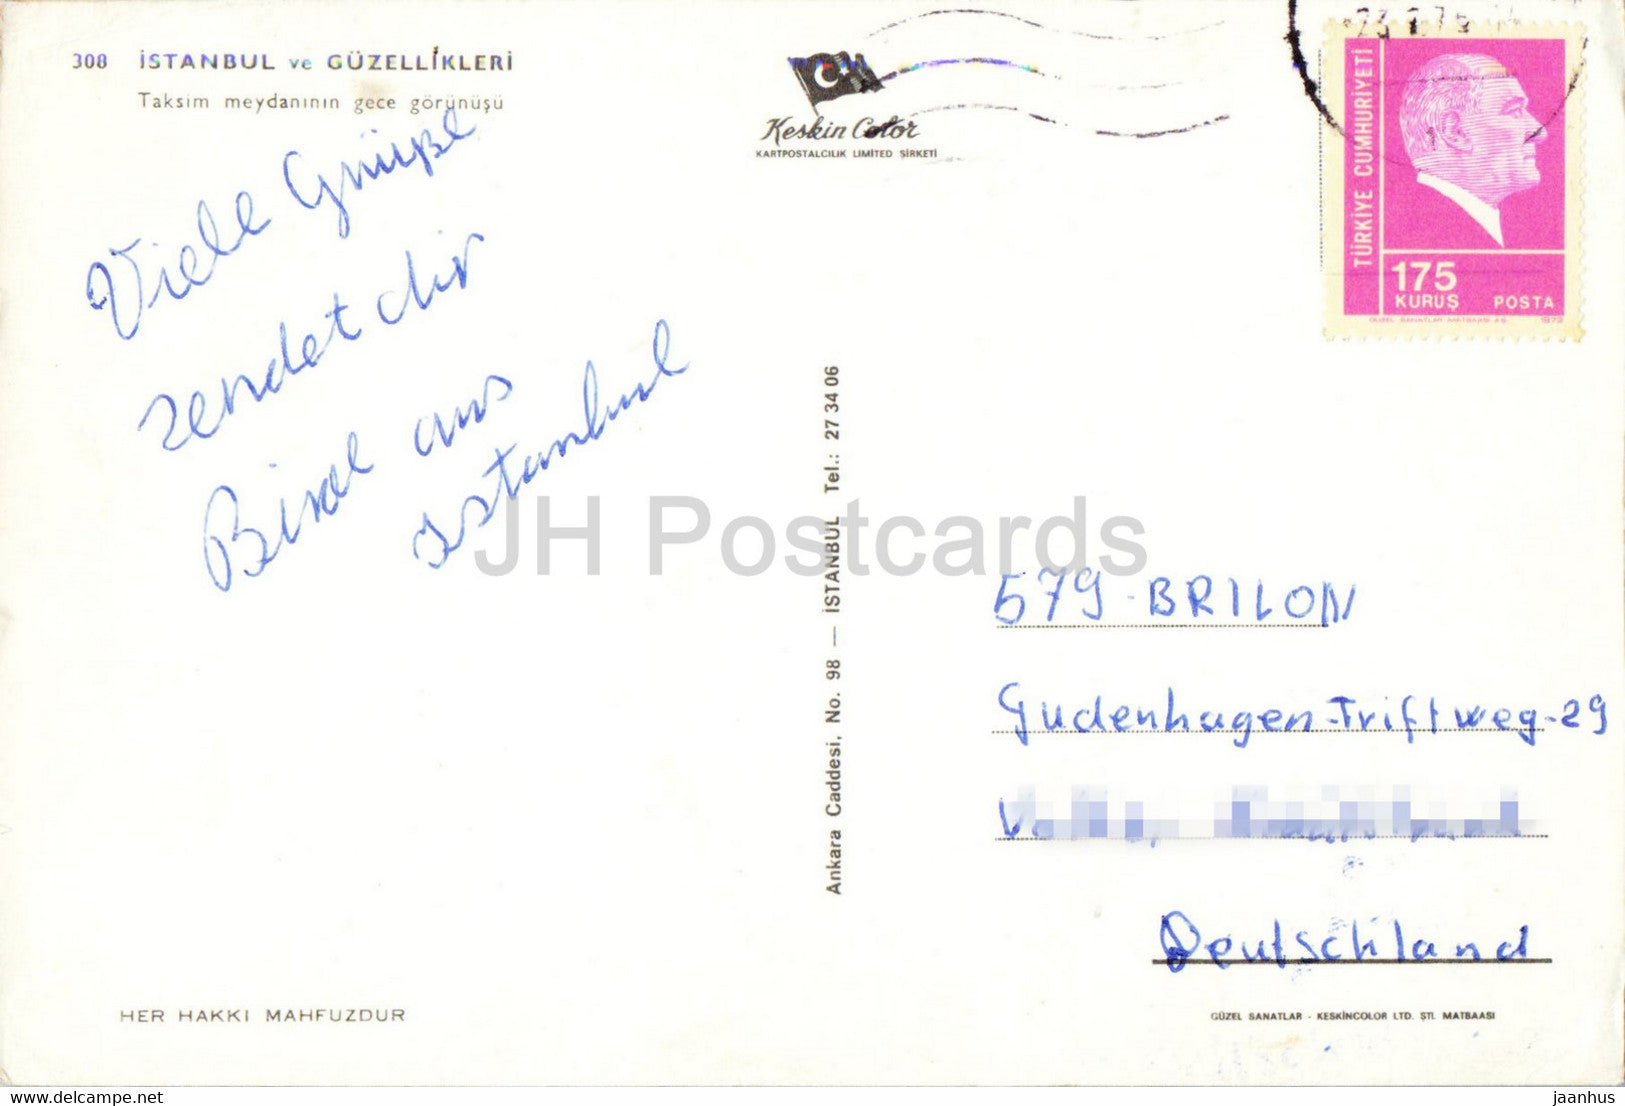 308 İSTANBUL ve GÜZELLİKLERİ
Taksim meydanının gece görünüşü
Keskin Color
KARTPOSTALCILIK LIMITED ŞİRKETİ
TÜRKİYE CUMHURİYETİ
175
KURUŞ POSTA
GÜZEL SANATLAR MATBAASI A.Ş. 1972
Viele Grüße
sendet dir
Birol aus
Istanbul
Ankara Caddesi, No. 98 — İSTANBUL Tel.: 27 34 06
JH Postcards
579-BRILON
Gudenhagen-Triftweg-29
Deutschland
HER HAKKI MAHFUZDUR
GÜZEL SANATLAR - KESKİNCOLOR LTD. ŞTİ. MATBAASI
jaanhus delcampe.net